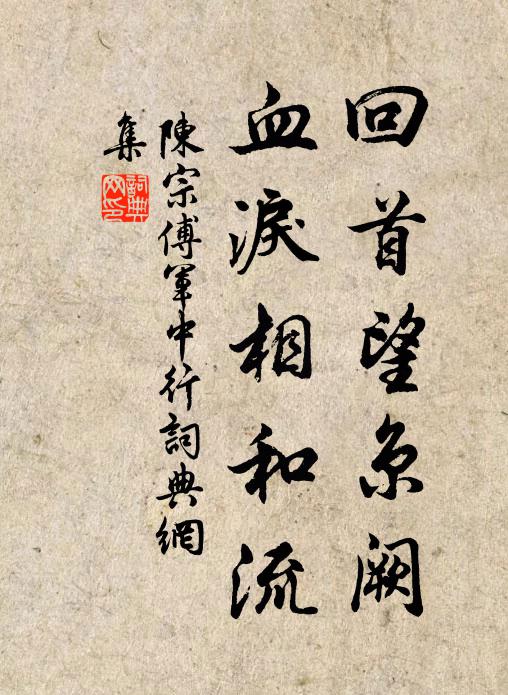 回首望京阙
血淚相和流
陳宗傅軍中行詞典網
集
詞典
网印